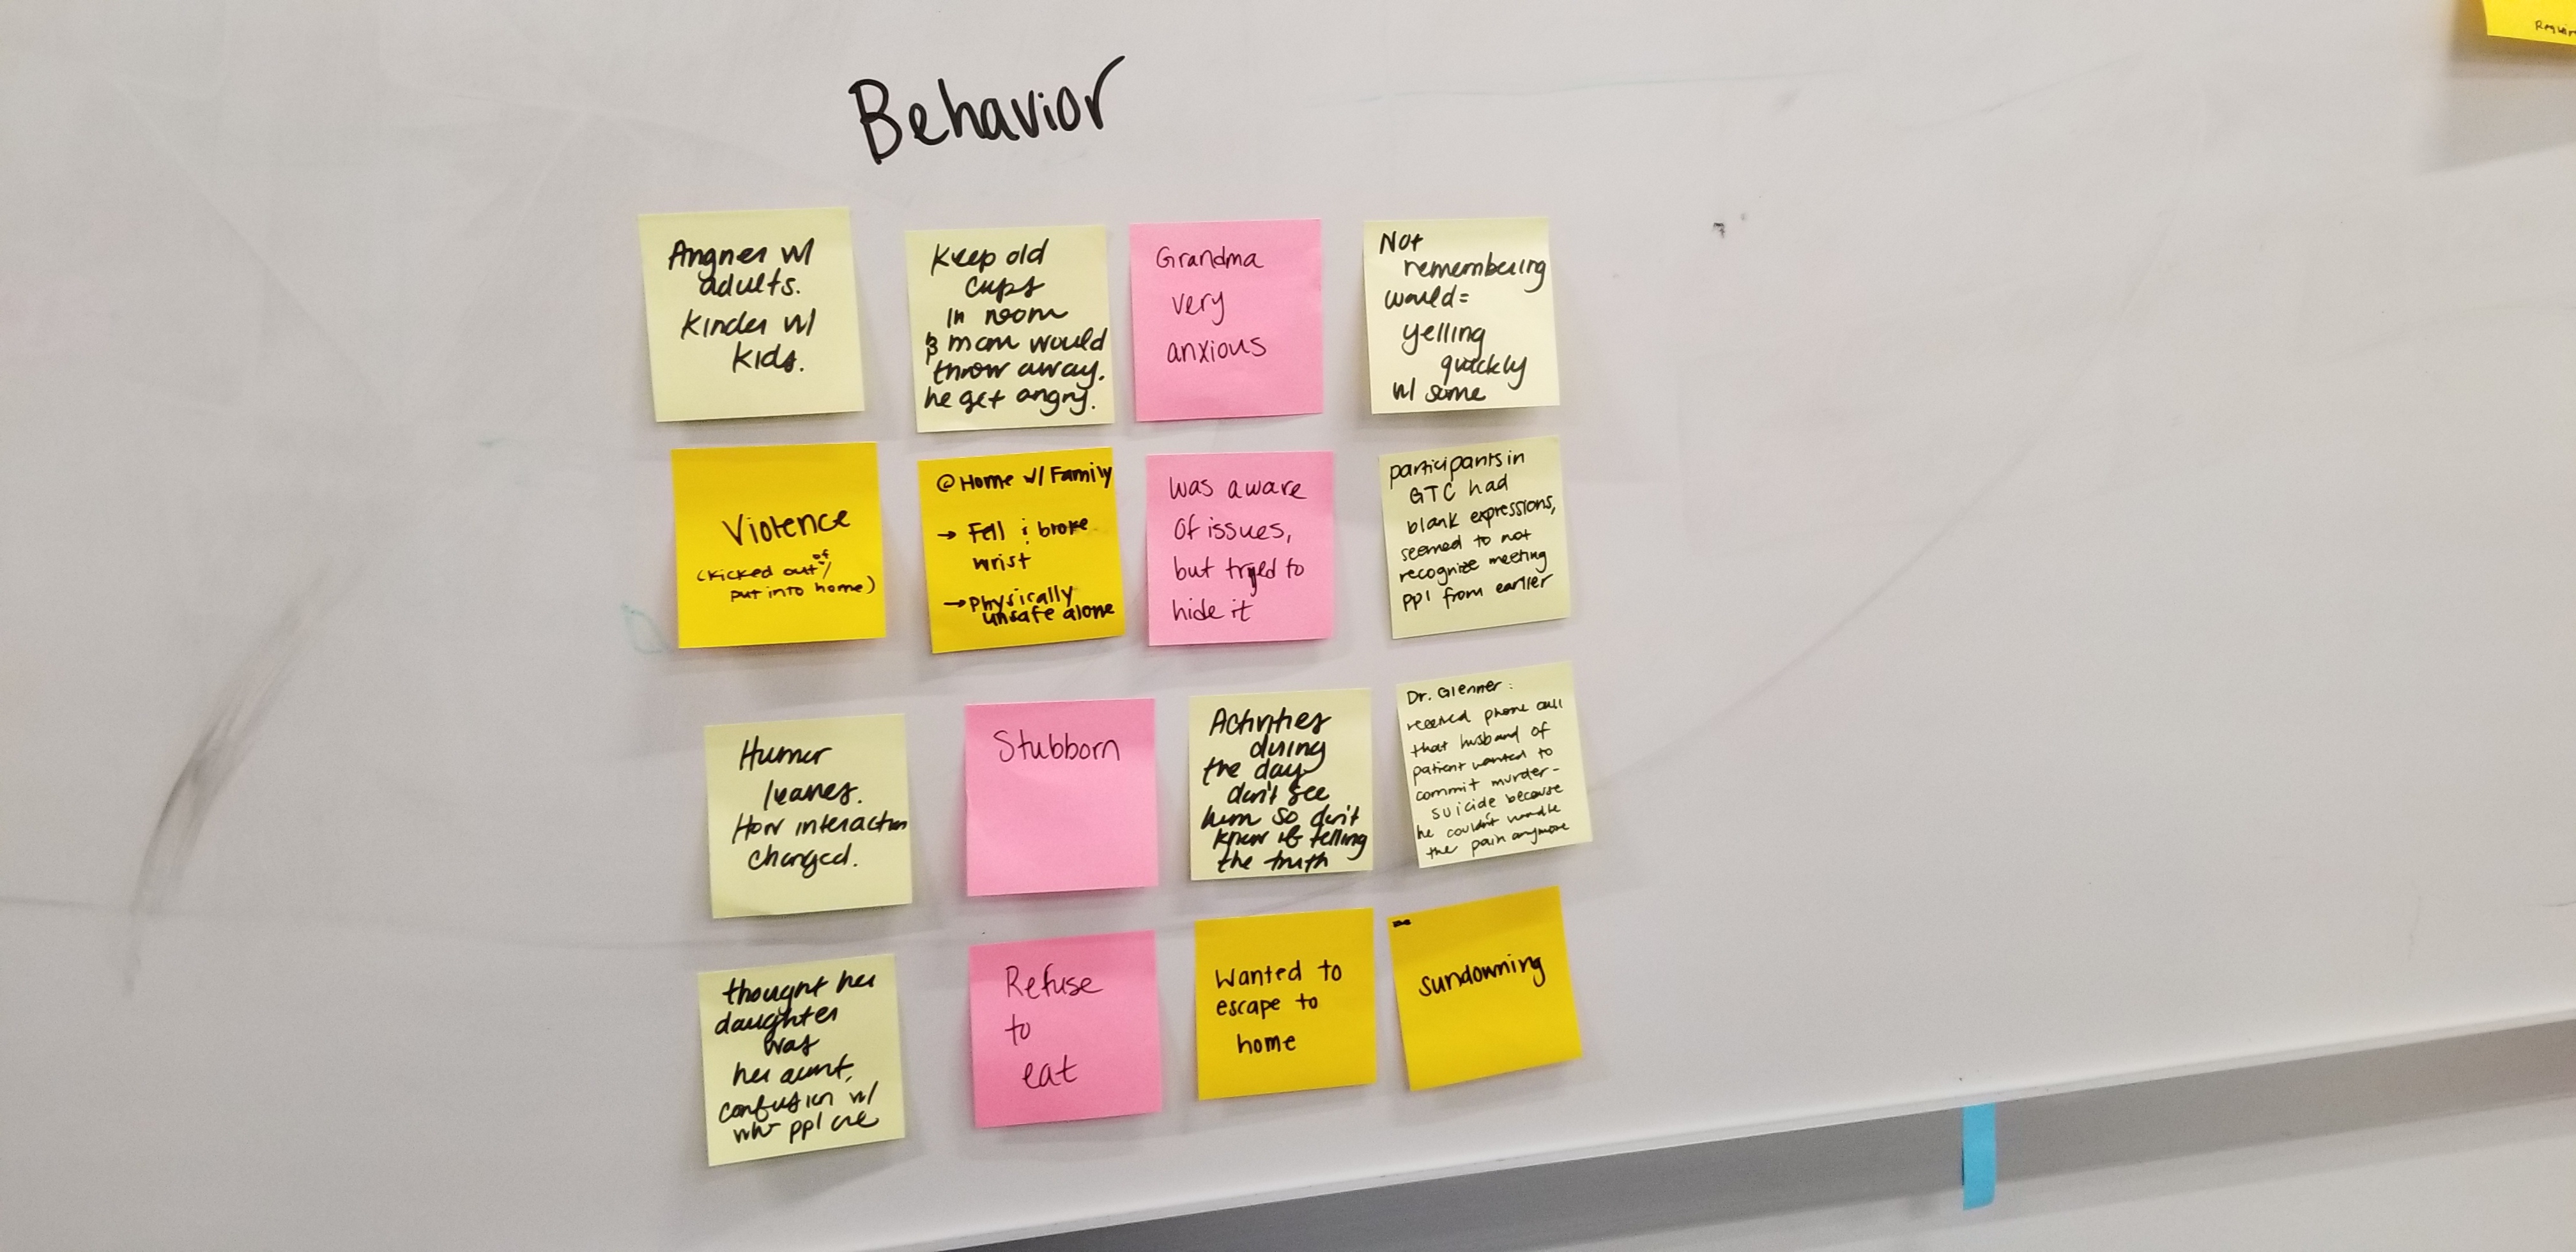 Behavior
Angrier w/
adults.
Kinder w/
kids.
Keep old
cups
in room
& mom would
throw away.
he get angry.
Grandma
very
anxious
Not
remembering
would =
yelling
quickly
w/ some
Violence
(kicked out of/
put into home)
@Home w/ Family
→ Fell & broke
wrist
→ physically
unsafe alone
was aware
of issues,
but tried to
hide it
participants in
GTC had
blank expressions,
seemed to not
recognize meeting
ppl from earlier
Humor
leaves.
How interaction
changed.
Stubborn
Activities
during
the day
don't see
him so don't
know if telling
the truth
Dr. Glenner:
received phone call
that husband of
patient wanted to
commit murder-
suicide because
he couldn't handle
the pain anymore
thought her
daughter
was
her aunt,
confusion w/
who ppl are
Refuse
to
eat
Wanted to
escape to
home
sundowning